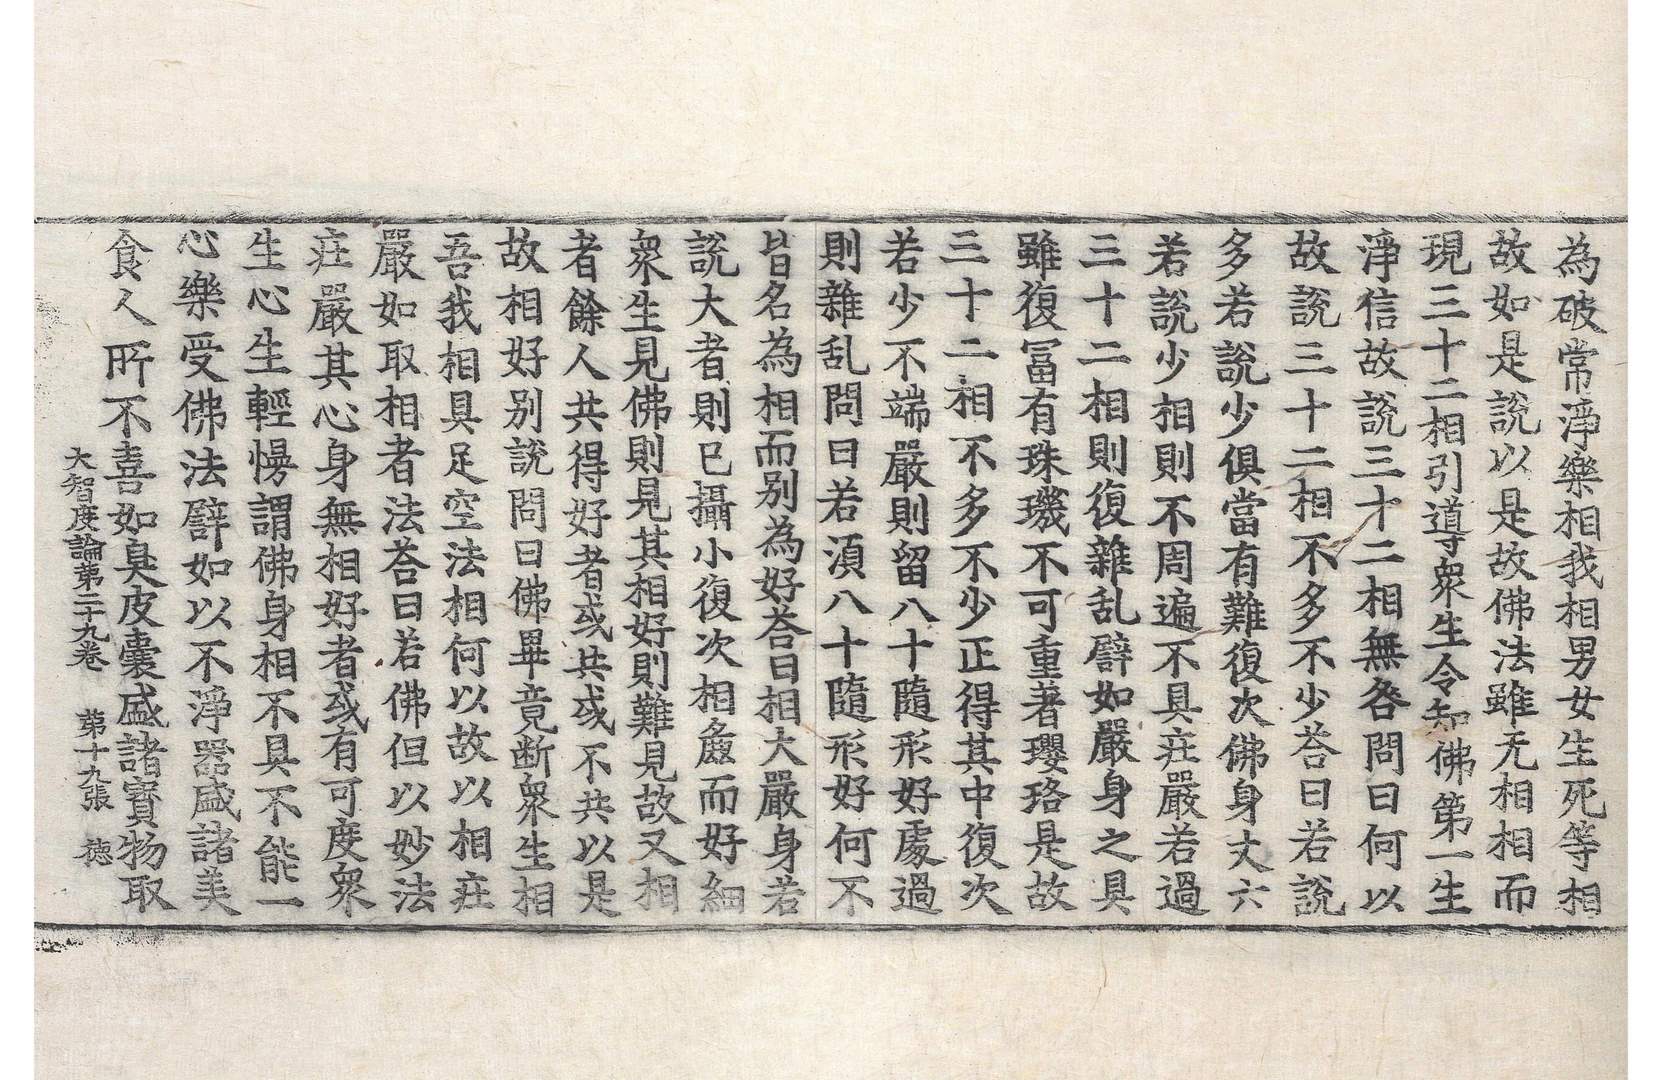 為破常淨樂相我相男女生死等相
故如是說以是故佛法雖无相相而
現三十二相引導衆生令知佛第一生
淨信故說三十二相無咎問曰何以
故說三十二相不多不少荅曰若說
多若說少俱當有難復次佛身丈六
若說少相則不周遍不具莊嚴若過
三十二相則復雜乱譬如嚴身之具
雖復冨有珠璣不可重著瓔珞是故
三十二相不多不少正得其中復次
若少不端嚴則留八十隨形好處過
則雜乱問曰若湏八十隨形好何不
皆名為相而别為好荅曰相大嚴身若
說大者則已攝小復次相麁而好細
衆生見佛則見其相好則難見故又相
者餘人共得好者或共或不共以是
故相好别說問曰佛畢竟断衆生相
吾我相具足空法相何以故以相莊
嚴如取相者法荅曰若佛但以妙法
莊嚴其心身無相好者或有可度衆
生心生輕慢謂佛身相不具不能一
心樂受佛法譬如以不淨器盛諸美
食人所不喜如臭皮囊盛諸寶物取
大智度論苐二十九卷 苐十九張 徳